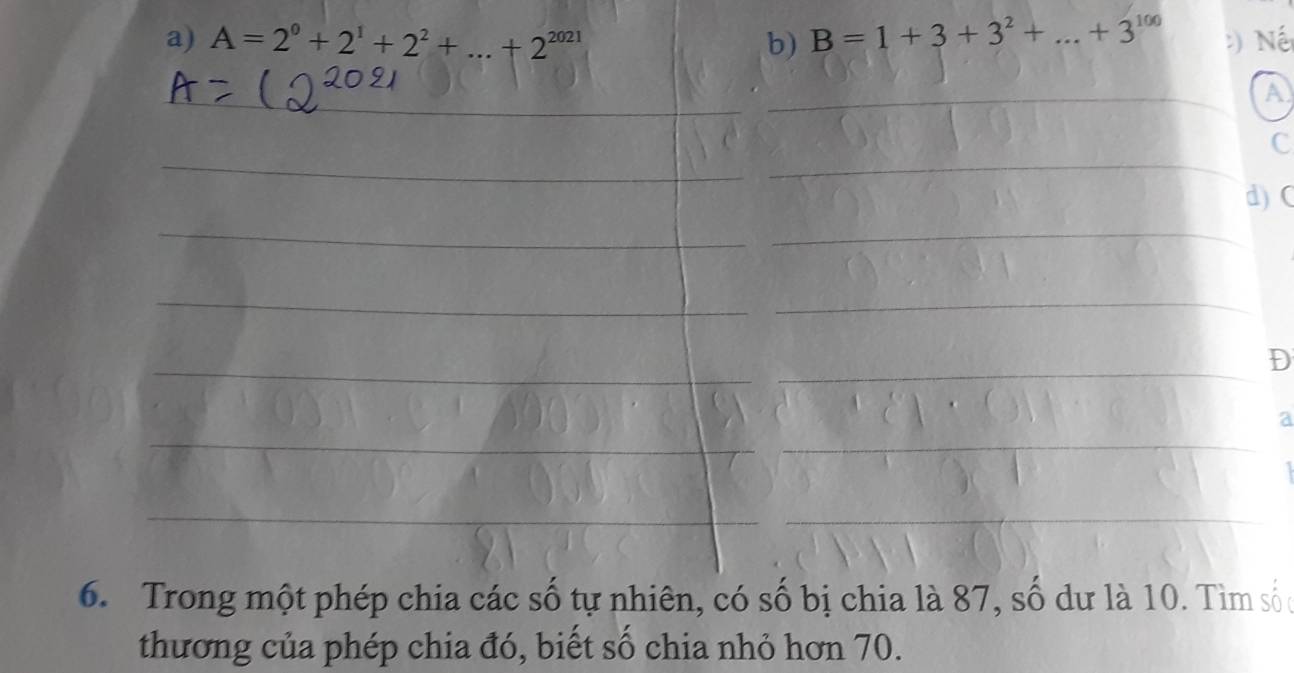 a) A = 2⁰ + 2¹ + 2² + ... + 2²⁰²¹
A = (2²⁰²¹
b) B = 1 + 3 + 3² + ... + 3¹⁰⁰
A.
C
d) C
Đ
a
6. Trong một phép chia các số tự nhiên, có số bị chia là 87, số dư là 10. Tìm số
thương của phép chia đó, biết số chia nhỏ hơn 70.